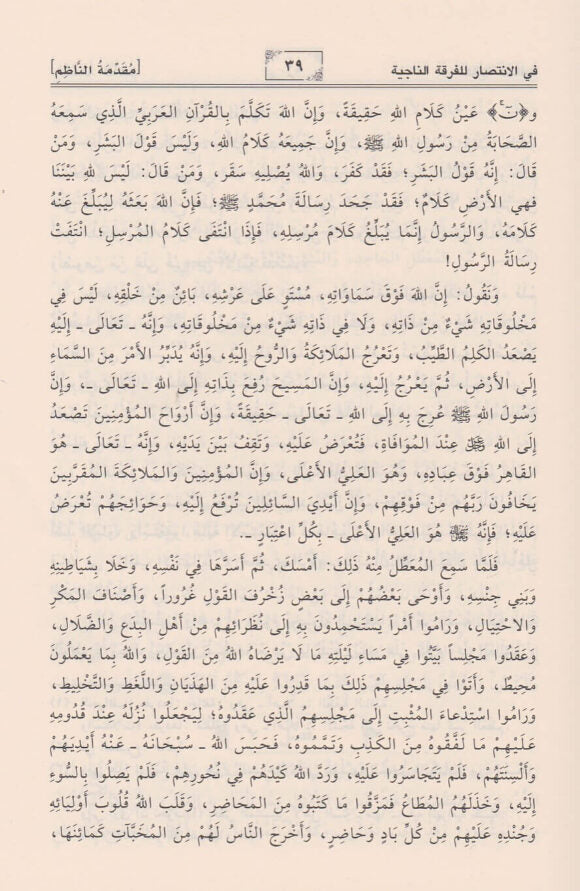 في الانتصار للفرقة الناجية
٣٩
[مُقَدِّمَةُ النَّاظِمِ]
و﴿نٓ﴾ عَيْنُ كَلَامِ اللهِ حَقِيقَةً، وَإِنَّ اللهَ تَكَلَّمَ بِالْقُرْآنِ العَرَبِيِّ الَّذِي سَمِعَهُ
الصَّحَابَةُ مِنْ رَسُولِ اللهِ ﷺ، وَإِنَّ جَمِيعَهُ كَلَامُ اللهِ، وَلَيْسَ قَوْلَ البَشَرِ، وَمَنْ
قَالَ: إِنَّهُ قَوْلُ البَشَرِ؛ فَقَدْ كَفَرَ، وَاللهُ يُصْلِيهِ سَقَر، وَمَنْ قَالَ: لَيْسَ للهِ بَيْنَنَا
فهي الأَرْضِ كَلَامٌ؛ فَقَدْ جَحَدَ رِسَالَةَ مُحَمَّدٍ ﷺ؛ فَإِنَّ اللهَ بَعَثَهُ لِيُبَلِّغَ عَنْهُ
كَلَامَهُ، وَالرَّسُولُ إِنَّمَا يُبَلِّغُ كَلَامَ مُرْسِلِهِ، فَإِذَا انْتَفَى كَلَامُ المُرْسِلِ؛ انْتَفَتْ
رِسَالَةُ الرَّسُولِ!
وَنَقُولُ: إِنَّ اللهَ فَوْقَ سَمَاوَاتِهِ، مُسْتَوٍ عَلَى عَرْشِهِ، بَائِنٌ مِنْ خَلْقِهِ، لَيْسَ فِي
مَخْلُوقَاتِهِ شَيْءٌ مِنْ ذَاتِهِ، وَلَا فِي ذَاتِهِ شَيْءٌ مِنْ مَخْلُوقَاتِهِ، وَإِنَّهُ ـ تَعَالَى ـ إِلَيْهِ
يَصْعَدُ الكَلِمُ الطَّيِّبُ، وَتَعْرُجُ المَلَائِكَةُ وَالرُّوحُ إِلَيْهِ، وَإِنَّهُ يُدَبِّرُ الأَمْرَ مِنَ السَّمَاءِ
إِلَى الأَرْضِ، ثُمَّ يَعْرُجُ إِلَيْهِ، وَإِنَّ المَسِيحَ رُفِعَ بِذَاتِهِ إِلَى اللهِ ـ تَعَالَى ـ، وَإِنَّ
رَسُولَ اللهِ ﷺ عُرِجَ بِهِ إِلَى اللهِ ـ تَعَالَى ـ حَقِيقَةً، وَإِنَّ أَرْوَاحَ المُؤْمِنِينَ تَصْعَدُ
إِلَى اللهِ عِنْدَ المُوَافَاةِ، فَتُعْرَضُ عَلَيْهِ، وَتَقِفُ بَيْنَ يَدَيْهِ، وَإِنَّهُ ـ تَعَالَى ـ هُوَ
القَاهِرُ فَوْقَ عِبَادِهِ، وَهُوَ العَلِيُّ الأَعْلَى، وَإِنَّ المُؤْمِنِينَ وَالمَلَائِكَةَ المُقَرَّبِينَ
يَخَافُونَ رَبَّهُم مِنْ فَوْقِهِمْ، وَإِنَّ أَيْدِيَ السَّائِلِينَ تُرْفَعُ إِلَيْهِ، وَحَوَائِجُهُمْ تُعْرَضُ
عَلَيْهِ؛ فَإِنَّهُ هُوَ العَلِيُّ الأَعْلَى ـ بِكُلِّ اعْتِبَارٍ ـ.
فَلَمَّا سَمِعَ المُعَطِّلُ مِنْهُ ذَلِكَ: أَمْسَكَ، ثُمَّ أَسَرَّهَا فِي نَفْسِهِ، وَخَلَا بِشَيَاطِينِهِ
وَبَنِي جِنْسِهِ، وَأَوْحَى بَعْضُهُمْ إِلَى بَعْضٍ زُخْرُفَ القَوْلِ غُرُوراً، وَأَصْنَافَ المَكْرِ
وَالاحْتِيَالِ، وَرَامُوا أَمْراً يَسْتَحْمِدُونَ بِهِ إِلَى نُظَرَائِهِمْ مِنْ أَهْلِ البِدَعِ وَالضَّلَالِ،
وَعَقَدُوا مَجْلِساً بَيَّتُوا فِي مَسَاءِ لَيْلَتِهِ مَا لَا يَرْضَاهُ اللهُ مِنَ القَوْلِ، وَاللهُ بِمَا يَعْمَلُونَ
مُحِيطٌ، وَأَتَوْا فِي مَجْلِسِهِمْ ذَلِكَ بِمَا قَدِرُوا عَلَيْهِ مِنَ الهَذَيَانِ وَاللَّغَطِ وَالتَّخْلِيطِ،
وَرَامُوا اسْتِدْعَاءَ المُثْبِتِ إِلَى مَجْلِسِهِمُ الَّذِي عَقَدُوهُ؛ لِيَجْعَلُوا نُزُلَهُ عِنْدَ قُدُومِهِ
عَلَيْهِمْ مَا لَفَّقُوهُ مِنَ الكَذِبِ وَتَمَّمُوهُ، فَحَبَسَ اللهُ ـ سُبْحَانَهُ ـ عَنْهُ أَيْدِيَهُمْ
وَأَلْسِنَتَهُمْ، فَلَمْ يَتَجَاسَرُوا عَلَيْهِ، وَرَدَّ اللهُ كَيْدَهُمْ فِي نُحُورِهِمْ، فَلَمْ يَصِلُوا بِالسُّوءِ
إِلَيْهِ، وَخَذَلَهُمُ المُطَاعُ فَمَزَّقُوا مَا كَتَبُوهُ مِنَ المَحَاضِرِ، وَقَلَبَ اللهُ قُلُوبَ أَوْلِيَائِهِ
وَجُنْدِهِ عَلَيْهِمْ مِنْ كُلِّ بَادٍ وَحَاضِرٍ، وَأَخْرَجَ النَّاسُ لَهُمْ مِنَ المُخَبَّآتِ كَمَائِنَهَا،